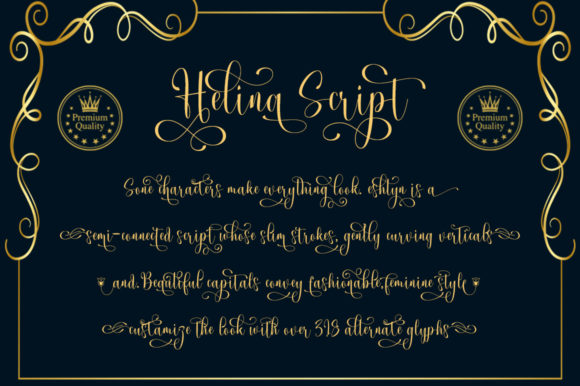 Helina Script
Premium
Quality
Premium
Quality
Sone characters make everything look. eshtyn is a
semi-connected script whose slim strokes, gently curving verticals
and.Beautiful capitals convey fashionable,feminine style
custamize the look with over 318 alternate glyphs